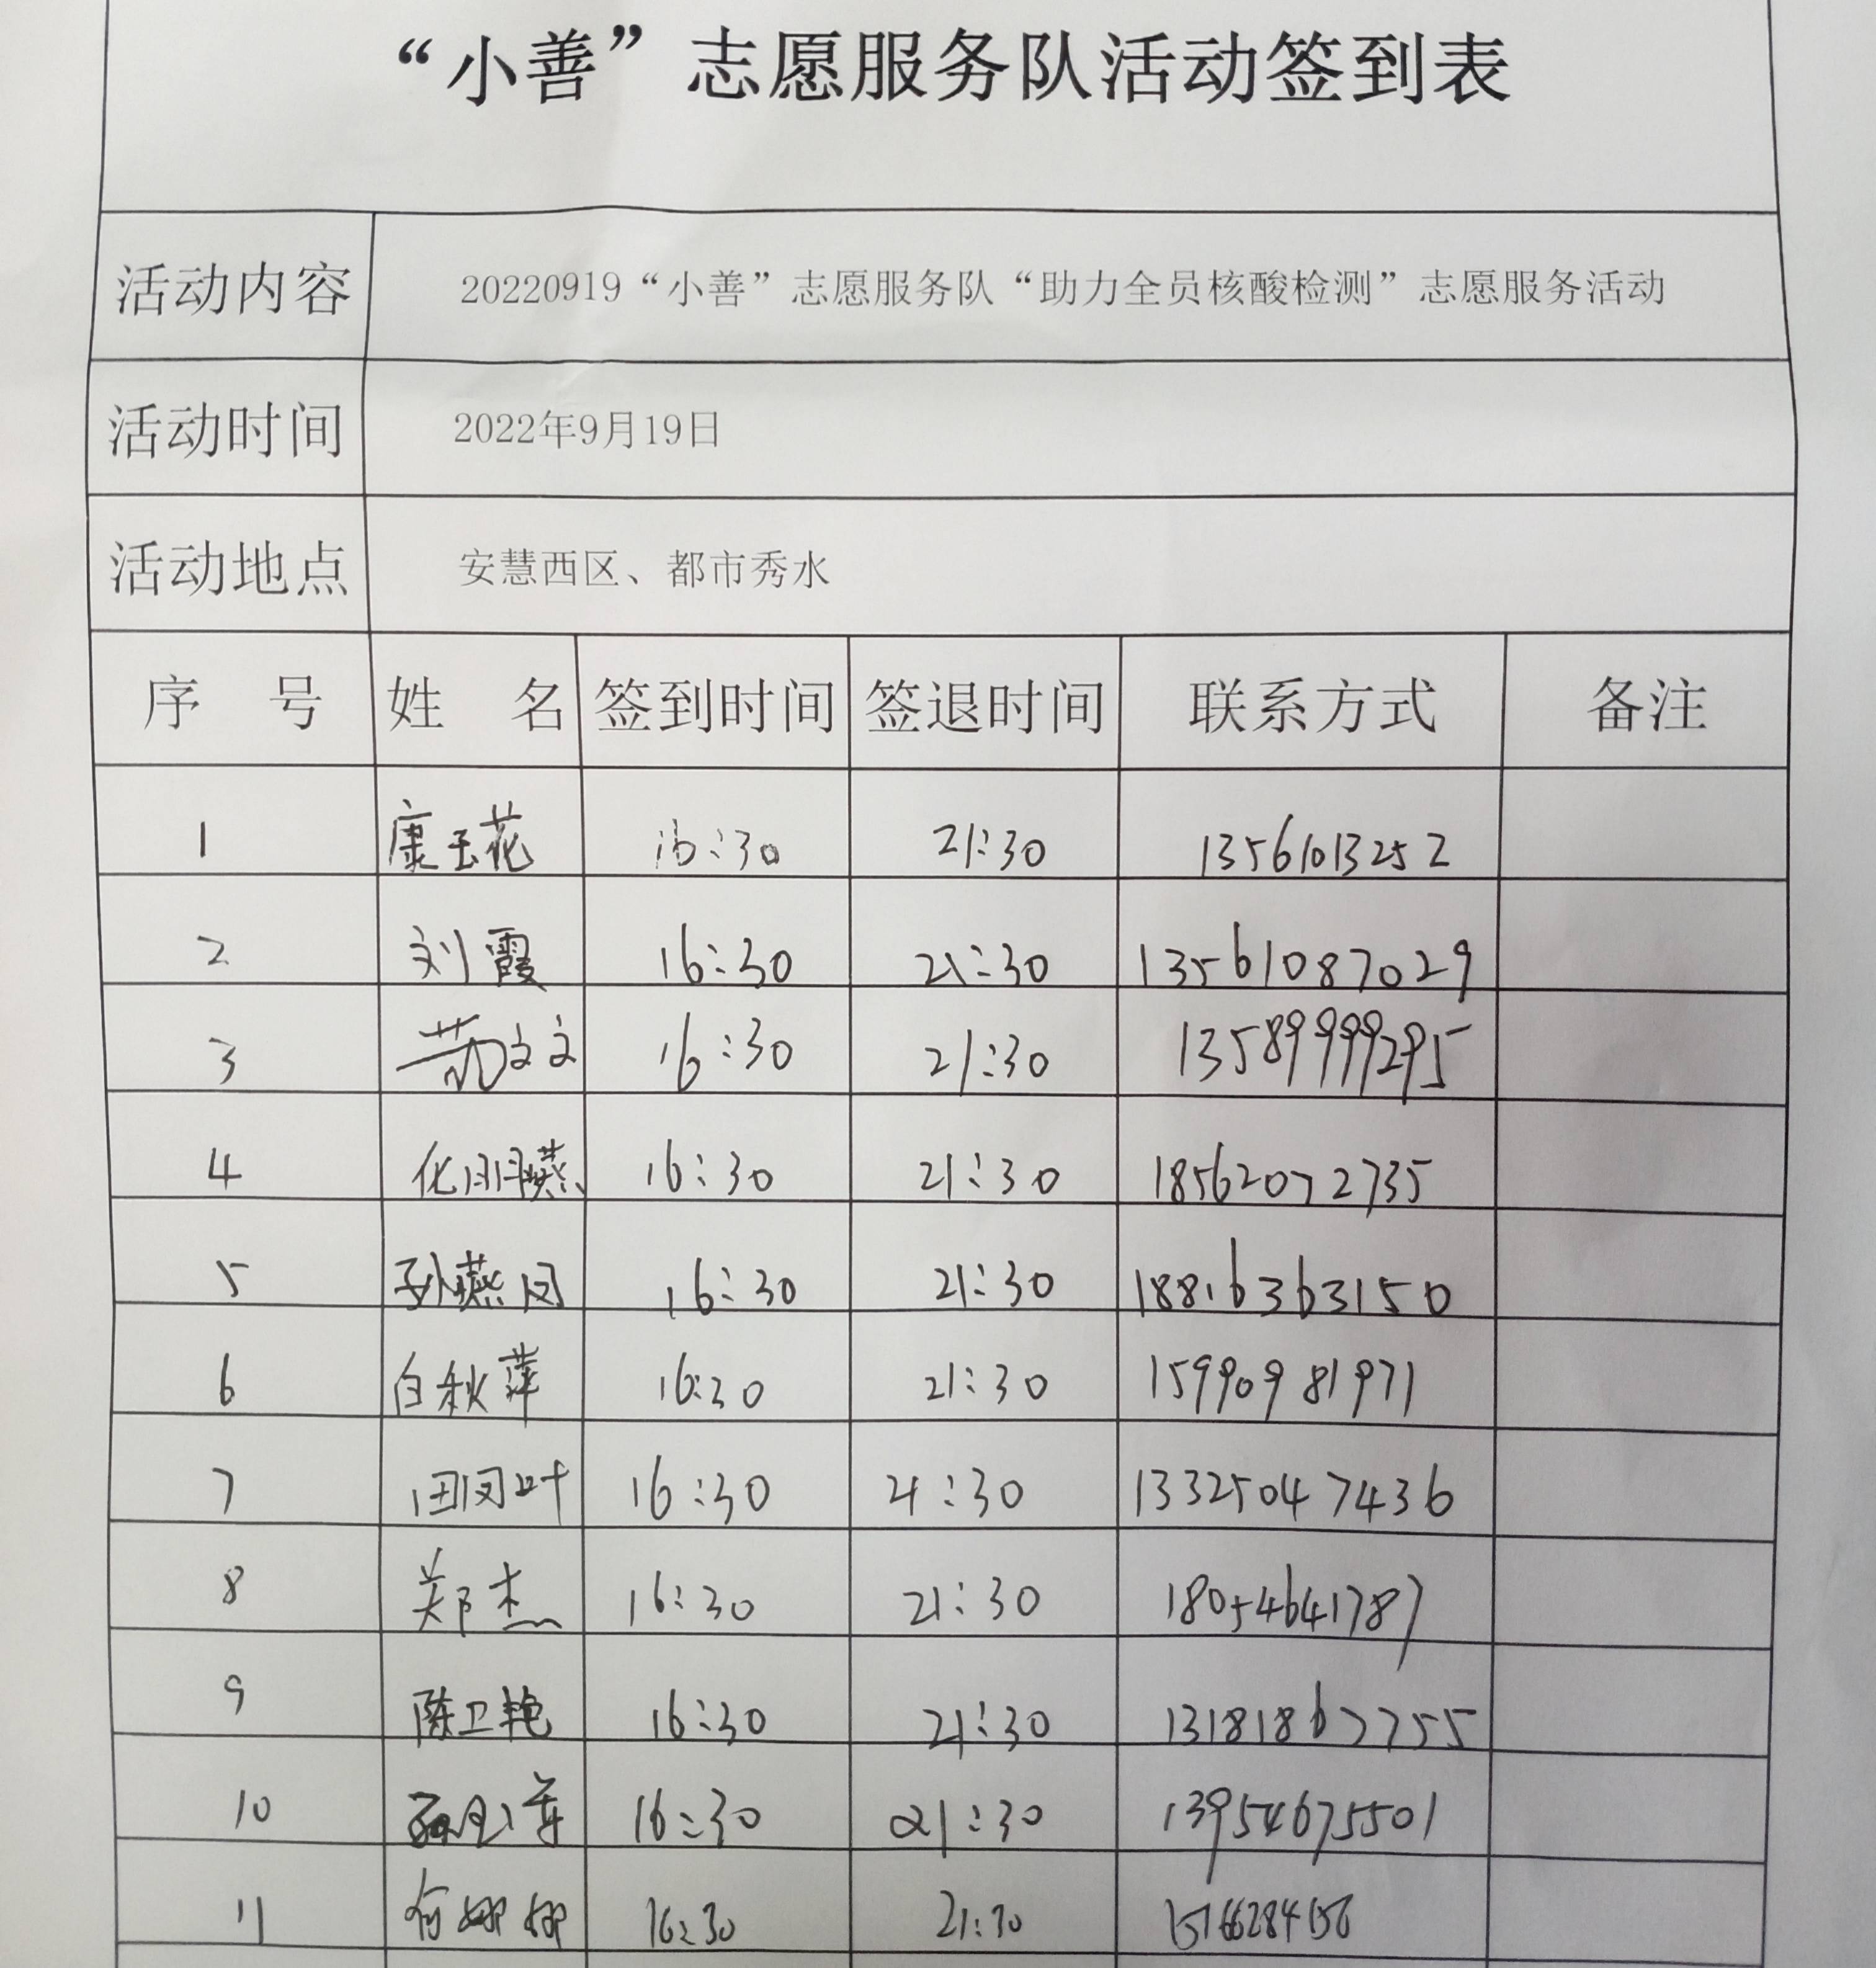 “小善”志愿服务队活动签到表
活动内容 20220919“小善”志愿服务队“助力全员核酸检测”志愿服务活动
活动时间 2022年9月19日
活动地点 安慧西区、都市秀水
序 号 姓 名 签到时间 签退时间 联系方式 备注
1 康玉花 16:30 21:30 13561013252
2 刘霞 16:30 21:30 13561087029
3 文文 16:30 21:30 13589999295
4 16:30 21:30 18562072735
5 孙燕凤 16:30 21:30 18816363150
6 白秋萍 16:30 21:30 15990981971
7 田凤叶 16:30 21:30 13325047436
8 郑杰 16:30 21:30 18054641787
9 陈卫艳 16:30 21:30 13181867755
10 16:30 21:30 13954675501
11 何娜娜 16:30 21:30